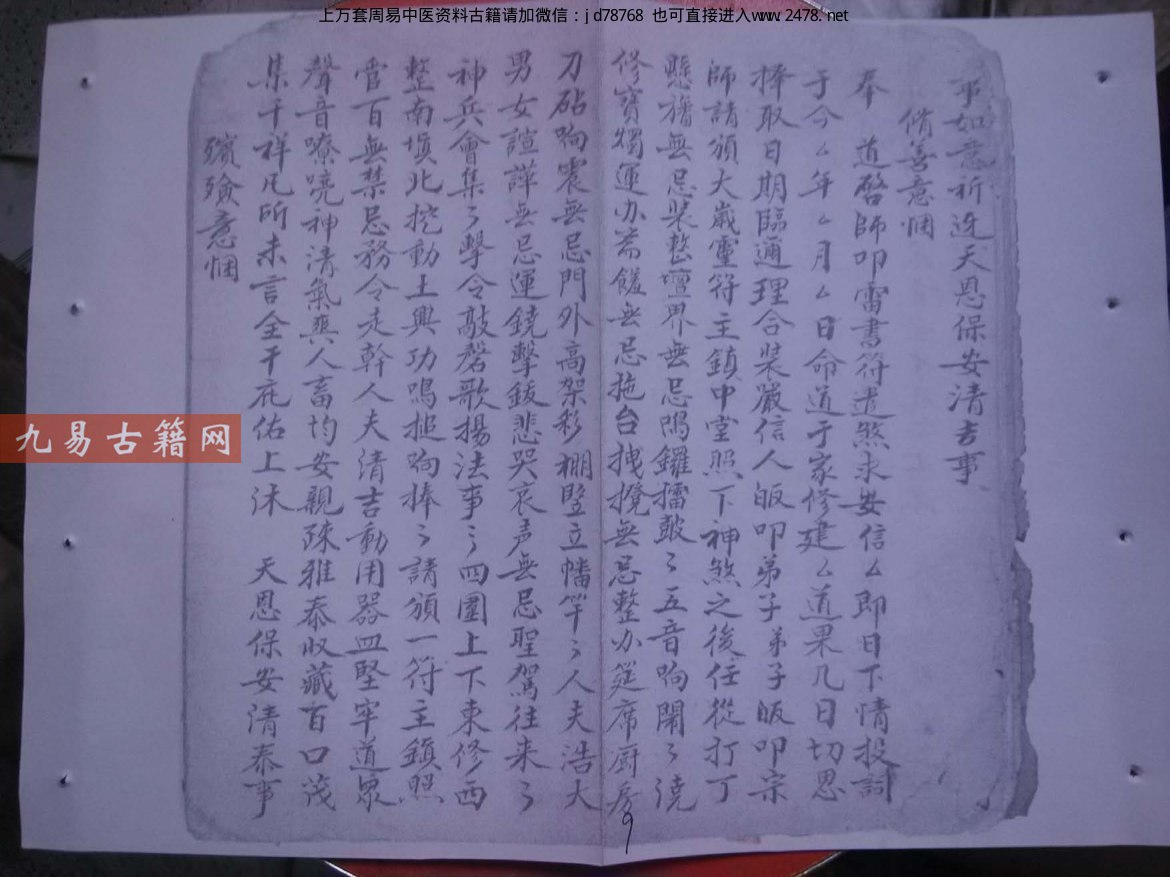 上万套周易中医资料古籍请加微信：jd78768 也可直接进入www.2478.net
九易古籍网
事如意祈迓天恩保安清吉事
脩善意悃
奉 道啓師叩雷書符遣煞求安信厶即日下情投詞
于今厶年厶月厶日命道于家修建厶道果几日切思
擇取日期臨通理合装嚴信人皈叩弟子弟子皈叩宗
師請頒大嵗靈符主鎮中堂照下神煞之後任從打丁
懸旛無忌装整壇界無忌鳴鑼擂鼓〻五音响鬧〻澆
修寳燭運办斋饈無忌拖台拽櫈無忌整办筵席厨房
刀砧响震無忌門外高架彩棚竪立幡竿〻人夫浩大
男女諠譁無忌運鐃擊鈸悲哭哀声無忌聖駕往来〻
神兵會集〻擊令敲磬歌揚法事〻四圍上下東修西
整南填北挖動土興功鳴搥响捧〻請頒一符主鎮照
管百無禁忌務令走幹人夫清吉動用器皿堅牢道衆
聲音嘹喨神清氣爽人畜均安親疎雅泰收藏百口茂
集千祥凡所未言全干庇佑上沐 天恩保安清泰事
殯殮意悃
9